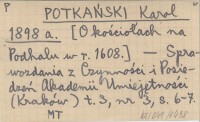 P
POTKAŃSKI Karol
1898 a. [O kościołach na
Podhalu w r. 1608.] — Spra-
wozdania z Czynności i Posie-
dzeń Akademii Umiejętności
(Kraków) t. 3, nr 3, s. 6-7.
MT